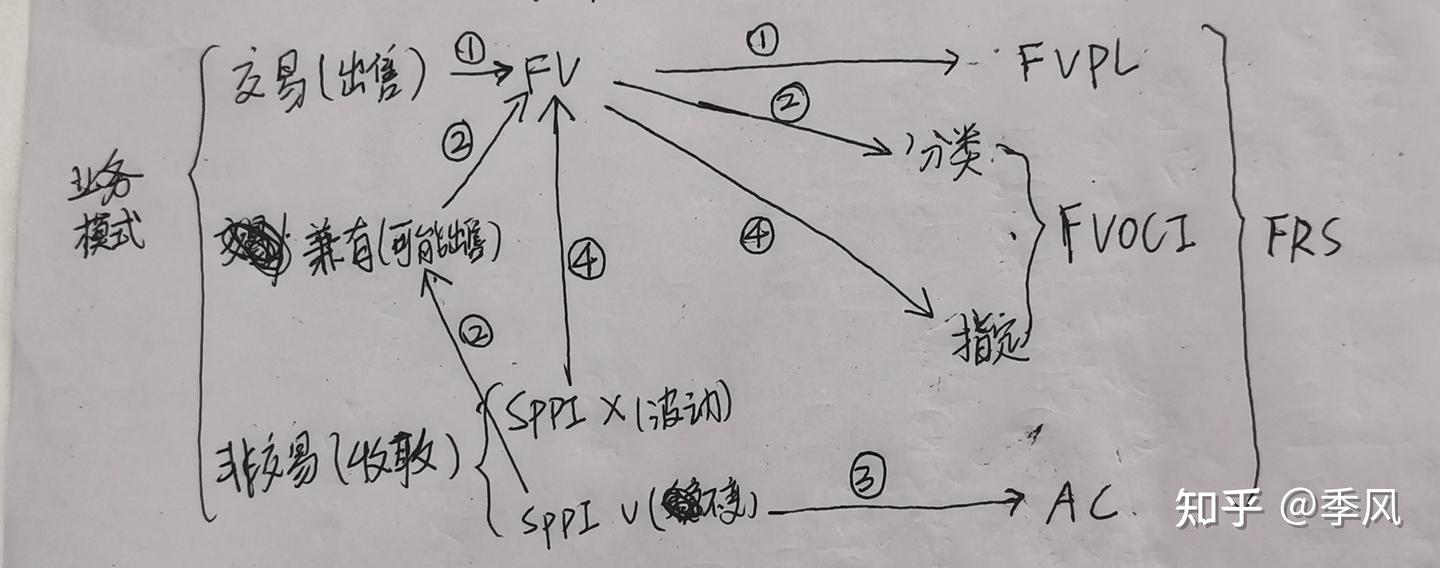 交易(出售) ① FV ① FVPL
② ② 分类
业务
模式
兼有(可能出售) ④ ④ FVOCI FRS
② 指定
SPPI X (波动)
非交易(收取)
SPPI V (不变) ③ AC
知乎 @季风